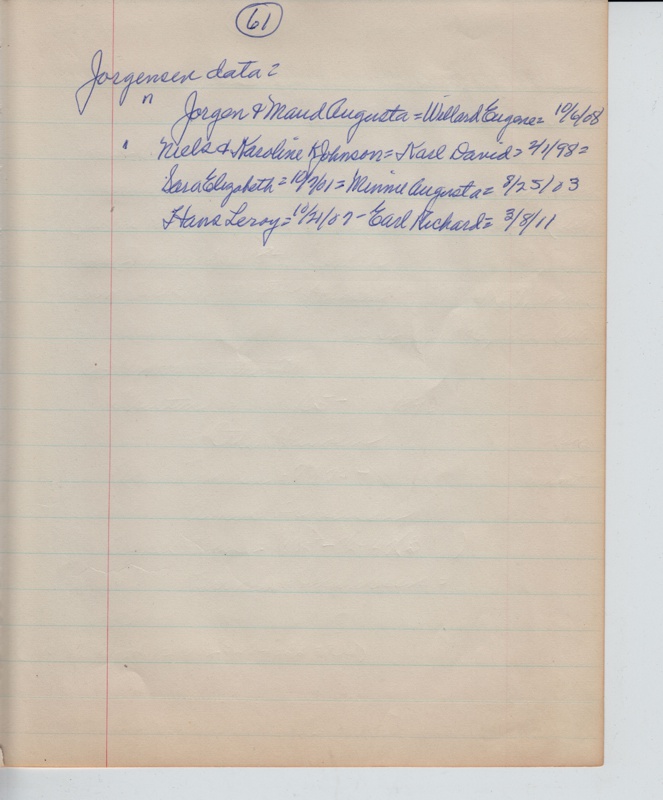 61
Jorgensen data =
" Jorgen & Maud Augusta = Willard Eugene = 10/6/08
" Niels & Karoline K Johnson = Karl David = 2/1/98 =
Sara Elizabeth = 10/7/01 = Minnie Augusta = 8/25/03
Hans Leroy = 10/21/07 - Earl Richard = 3/8/11